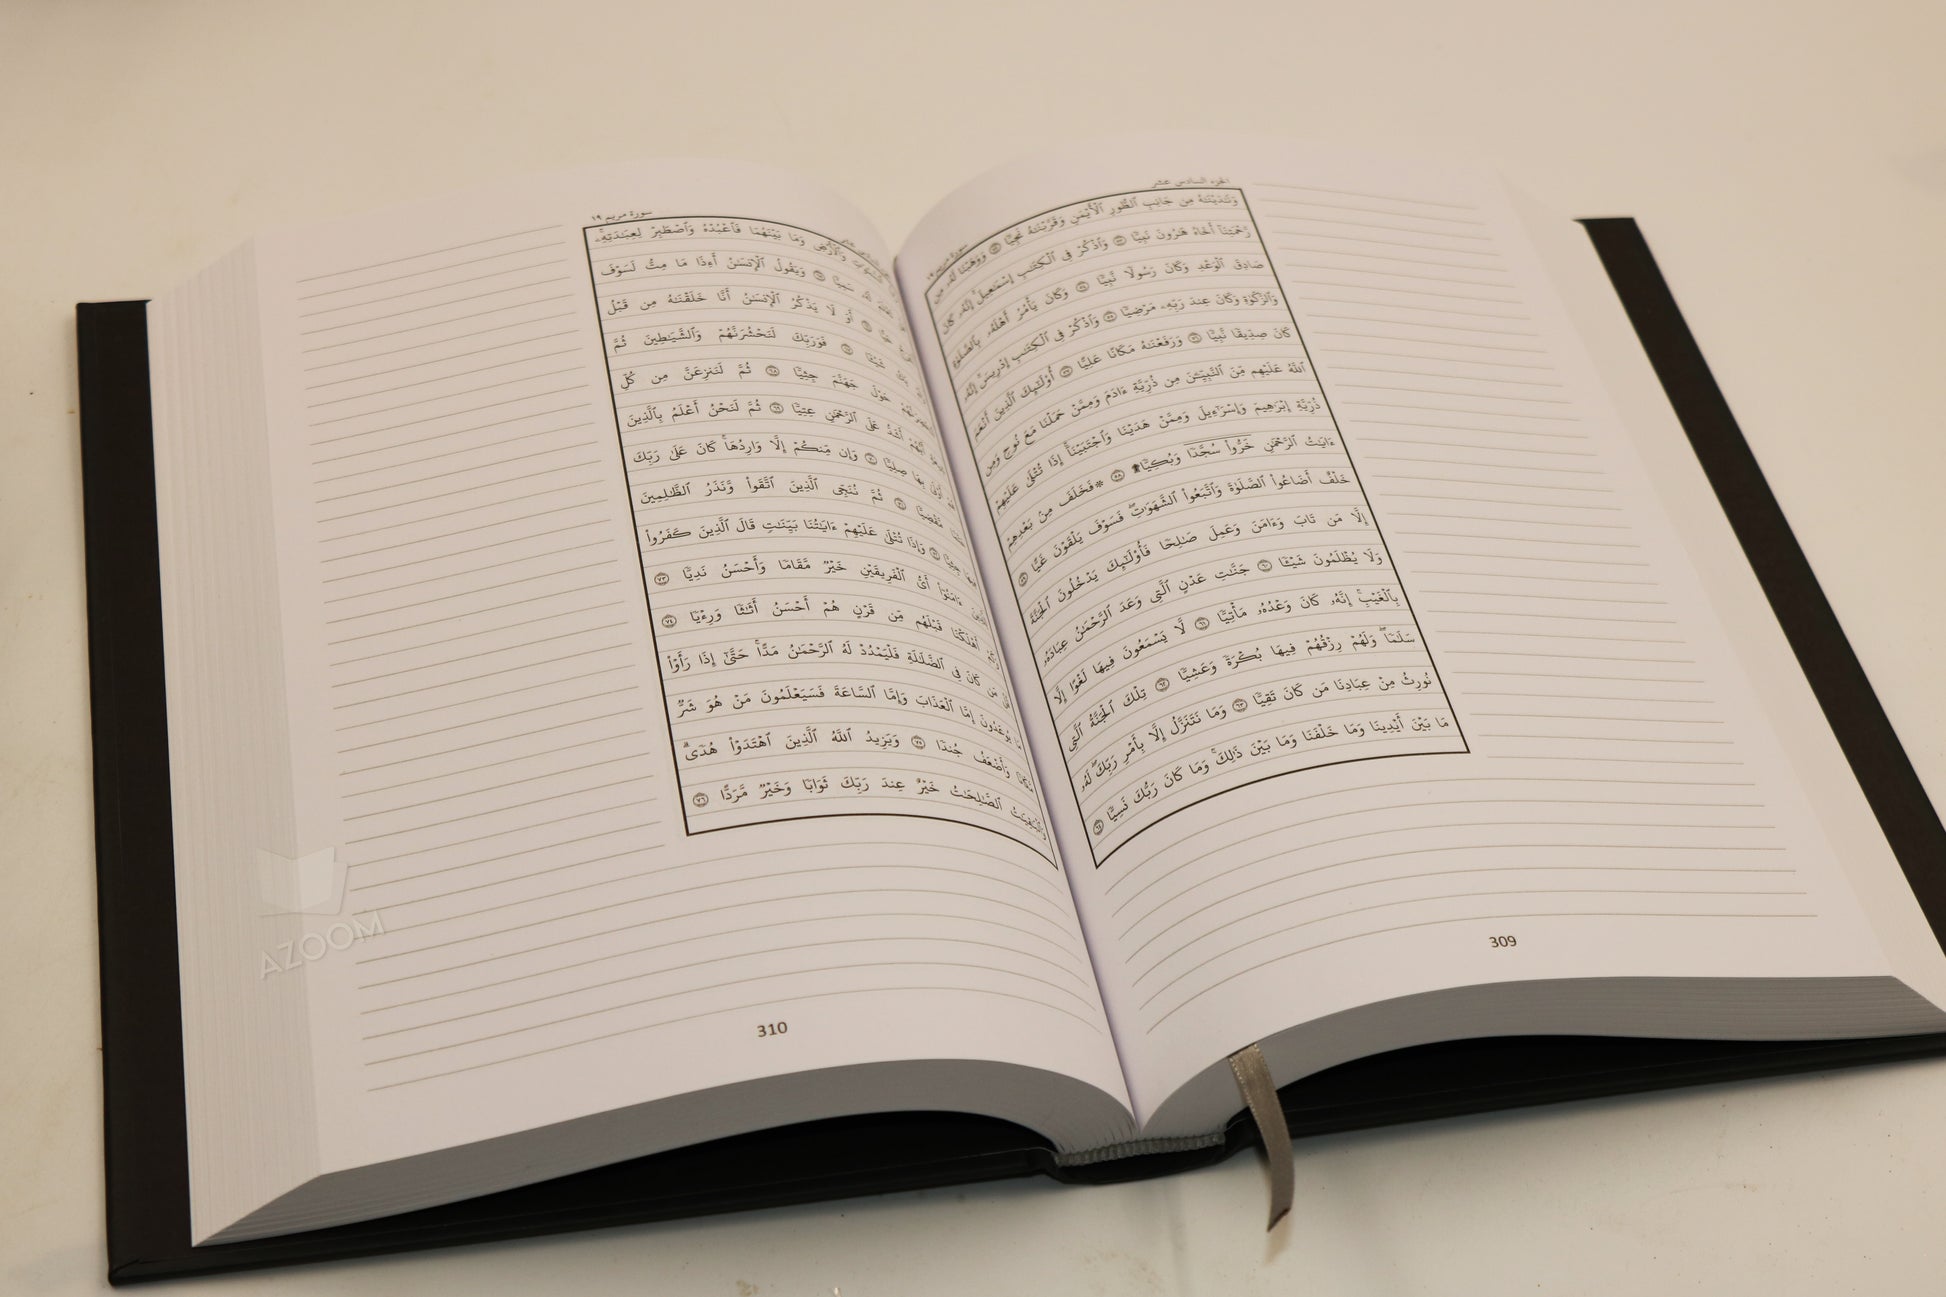 الجزء السادس عشر
سورة مريم ١٩
وَنَٰدَيْنَٰهُ مِن جَانِبِ ٱلطُّورِ ٱلْأَيْمَنِ وَقَرَّبْنَٰهُ نَجِيًّا ٥٢ وَوَهَبْنَا لَهُۥ مِن
رَّحْمَتِنَآ أَخَاهُ هَٰرُونَ نَبِيًّا ٥٣ وَٱذْكُرْ فِى ٱلْكِتَٰبِ إِسْمَٰعِيلَ ۚ إِنَّهُۥ كَانَ
صَادِقَ ٱلْوَعْدِ وَكَانَ رَسُولًا نَّبِيًّا ٥٤ وَكَانَ يَأْمُرُ أَهْلَهُۥ بِٱلصَّلَوٰةِ
وَٱلزَّكَوٰةِ وَكَانَ عِندَ رَبِّهِۦ مَرْضِيًّا ٥٥ وَٱذْكُرْ فِى ٱلْكِتَٰبِ إِدْرِيسَ ۚ إِنَّهُۥ
كَانَ صِدِّيقًا نَّبِيًّا ٥٦ وَرَفَعْنَٰهُ مَكَانًا عَلِيًّا ٥٧ أُو۟لَٰٓئِكَ ٱلَّذِينَ أَنْعَمَ
ٱللَّهُ عَلَيْهِم مِّنَ ٱلنَّبِيِّـۧنَ مِن ذُرِّيَّةِ ءَادَمَ وَمِمَّنْ حَمَلْنَا مَعَ نُوحٍ وَمِن
ذُرِّيَّةِ إِبْرَٰهِيمَ وَإِسْرَٰٓءِيلَ وَمِمَّنْ هَدَيْنَا وَٱجْتَبَيْنَآ ۚ إِذَا تُتْلَىٰ عَلَيْهِمْ
ءَايَٰتُ ٱلرَّحْمَٰنِ خَرُّوا۟ سُجَّدًا وَبُكِيًّا ۩ ٥٨ ۞ فَخَلَفَ مِنۢ بَعْدِهِمْ
خَلْفٌ أَضَاعُوا۟ ٱلصَّلَوٰةَ وَٱتَّبَعُوا۟ ٱلشَّهَوَٰتِ ۖ فَسَوْفَ يَلْقَوْنَ غَيًّا ٥٩
إِلَّا مَن تَابَ وَءَامَنَ وَعَمِلَ صَٰلِحًا فَأُو۟لَٰٓئِكَ يَدْخُلُونَ ٱلْجَنَّةَ
وَلَا يُظْلَمُونَ شَيْـًٔا ٦٠ جَنَّٰتِ عَدْنٍ ٱلَّتِى وَعَدَ ٱلرَّحْمَٰنُ عِبَادَهُۥ
بِٱلْغَيْبِ ۚ إِنَّهُۥ كَانَ وَعْدُهُۥ مَأْتِيًّا ٦١ لَّا يَسْمَعُونَ فِيهَا لَغْوًا إِلَّا
سَلَٰمًا ۖ وَلَهُمْ رِزْقُهُمْ فِيهَا بُكْرَةً وَعَشِيًّا ٦٢ تِلْكَ ٱلْجَنَّةُ ٱلَّتِى
نُورِثُ مِنْ عِبَادِنَا مَن كَانَ تَقِيًّا ٦٣ وَمَا نَتَنَزَّلُ إِلَّا بِأَمْرِ رَبِّكَ ۖ لَهُۥ
مَا بَيْنَ أَيْدِينَا وَمَا خَلْفَنَا وَمَا بَيْنَ ذَٰلِكَ ۚ وَمَا كَانَ رَبُّكَ نَسِيًّا ٦٤
309
سورة مريم ١٩
ٱلسَّمَٰوَٰتِ وَٱلْأَرْضِ وَمَا بَيْنَهُمَا فَٱعْبُدْهُ وَٱصْطَبِرْ لِعِبَٰدَتِهِۦ ۚ
سَمِيًّا ٦٥ وَيَقُولُ ٱلْإِنسَٰنُ أَءِذَا مَا مِتُّ لَسَوْفَ
حَيًّا ٦٦ أَوَلَا يَذْكُرُ ٱلْإِنسَٰنُ أَنَّا خَلَقْنَٰهُ مِن قَبْلُ
شَيْـًٔا ٦٧ فَوَرَبِّكَ لَنَحْشُرَنَّهُمْ وَٱلشَّيَٰطِينَ ثُمَّ
حَوْلَ جَهَنَّمَ جِثِيًّا ٦٨ ثُمَّ لَنَنزِعَنَّ مِن كُلِّ
أَيُّهُمْ أَشَدُّ عَلَى ٱلرَّحْمَٰنِ عِتِيًّا ٦٩ ثُمَّ لَنَحْنُ أَعْلَمُ بِٱلَّذِينَ
أَوْلَىٰ بِهَا صِلِيًّا ٧٠ وَإِن مِّنكُمْ إِلَّا وَارِدُهَا ۚ كَانَ عَلَىٰ رَبِّكَ
مَّقْضِيًّا ٧١ ثُمَّ نُنَجِّى ٱلَّذِينَ ٱتَّقَوا۟ وَّنَذَرُ ٱلظَّٰلِمِينَ
فِيهَا جِثِيًّا ٧٢ وَإِذَا تُتْلَىٰ عَلَيْهِمْ ءَايَٰتُنَا بَيِّنَٰتٍ قَالَ ٱلَّذِينَ كَفَرُوا۟
ءَامَنُوٓا۟ أَىُّ ٱلْفَرِيقَيْنِ خَيْرٌ مَّقَامًا وَأَحْسَنُ نَدِيًّا ٧٣
أَهْلَكْنَا قَبْلَهُم مِّن قَرْنٍ هُمْ أَحْسَنُ أَثَٰثًا وَرِءْيًا ٧٤
مَن كَانَ فِى ٱلضَّلَٰلَةِ فَلْيَمْدُدْ لَهُ ٱلرَّحْمَٰنُ مَدًّا ۚ حَتَّىٰٓ إِذَا رَأَوْا۟
مَا يُوعَدُونَ إِمَّا ٱلْعَذَابَ وَإِمَّا ٱلسَّاعَةَ فَسَيَعْلَمُونَ مَنْ هُوَ شَرٌّ
مَّكَانًا وَأَضْعَفُ جُندًا ٧٥ وَيَزِيدُ ٱللَّهُ ٱلَّذِينَ ٱهْتَدَوْا۟ هُدًى ۗ
وَٱلْبَٰقِيَٰتُ ٱلصَّٰلِحَٰتُ خَيْرٌ عِندَ رَبِّكَ ثَوَابًا وَخَيْرٌ مَّرَدًّا ٧٦
310
AZOOM